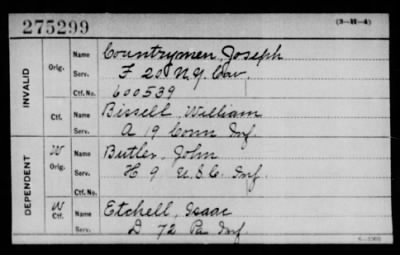 275299
(3-H-4)
INVALID
Orig.
Name Countrymen, Joseph
Serv. F 20 N.Y. Cav.
Ctf. No. 600539
Ctf.
Name Bissell, William
Serv. A 19 Conn Inf.
DEPENDENT
W
Orig.
Name Butler, John
Serv. H 9 U.S.C. Inf.
Ctf. No.
W
Ctf.
Name Etchell, Isaac
Serv. D 72 Pa Inf.